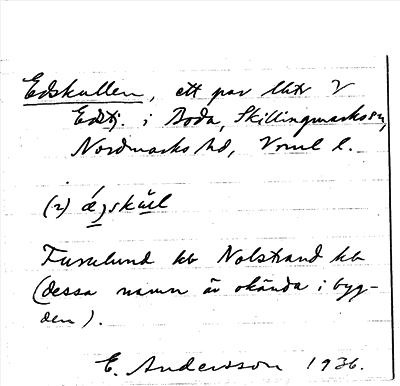 Edskullen, ett par llstr V
Edstj. i Boda, Skillingmarks sn,
Nordmarks hd, Vrml l.
(2)
Furulund kb Nolstrand kb
(dessa namn är okända i byg-
den).
E. Andersson 1936.